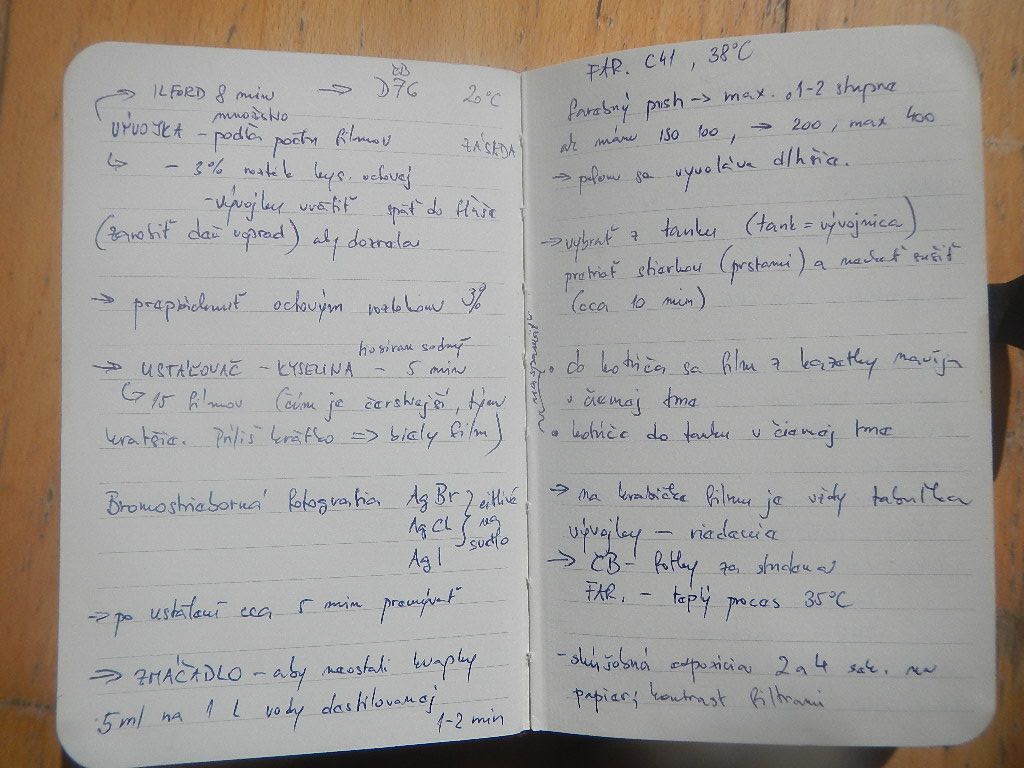 → ILFORD 8 min → D76 20°C
ČB
množstvo
VÝVOJKA - podľa počtu filmov ZÁSADA
↳ - 3% roztok kys. octovej
- vývojky vrátiť späť do fľaše
(zarobiť deň vopred) aby dozrela
→ octovým roztokom 3%
hosiran sodný
→ USTAĽOVAČ - KYSELINA - 5 min
↳ 15 filmov (čím je čerstvejší, tým
kratšie. Príliš krátko => biely film)
Bromostrieborná fotografia AgBr } citlivé
AgCl } na
svetlo
AgI
→ po ustálení cca 5 min premývať
→ ZMÁČADLO - aby neostali kvapky
5ml na 1 L vody destilovanej
1-2 min
FAR. C41, 38°C
farebný push → max. o 1-2 stupne
ak máme ISO 100, → 200, max 400
→ potom sa vyvoláva dlhšie.
→ vybrať z tanku (tank = vývojnica)
pretrieť stierkou (prstami) a nechať sušiť
(cca 10 min)
• do kotúča sa film z kazetky navíja
v čiernej tme
• kotúče do tanku v čiernej tme
→ na krabičke filmu je vždy tabuľka
vývojky - riedenia
→ ČB - fotky za studena
FAR. - teplý proces 35°C
- skúšobná expozícia 2 a 4 sek. na
papier, kontrast filtrami